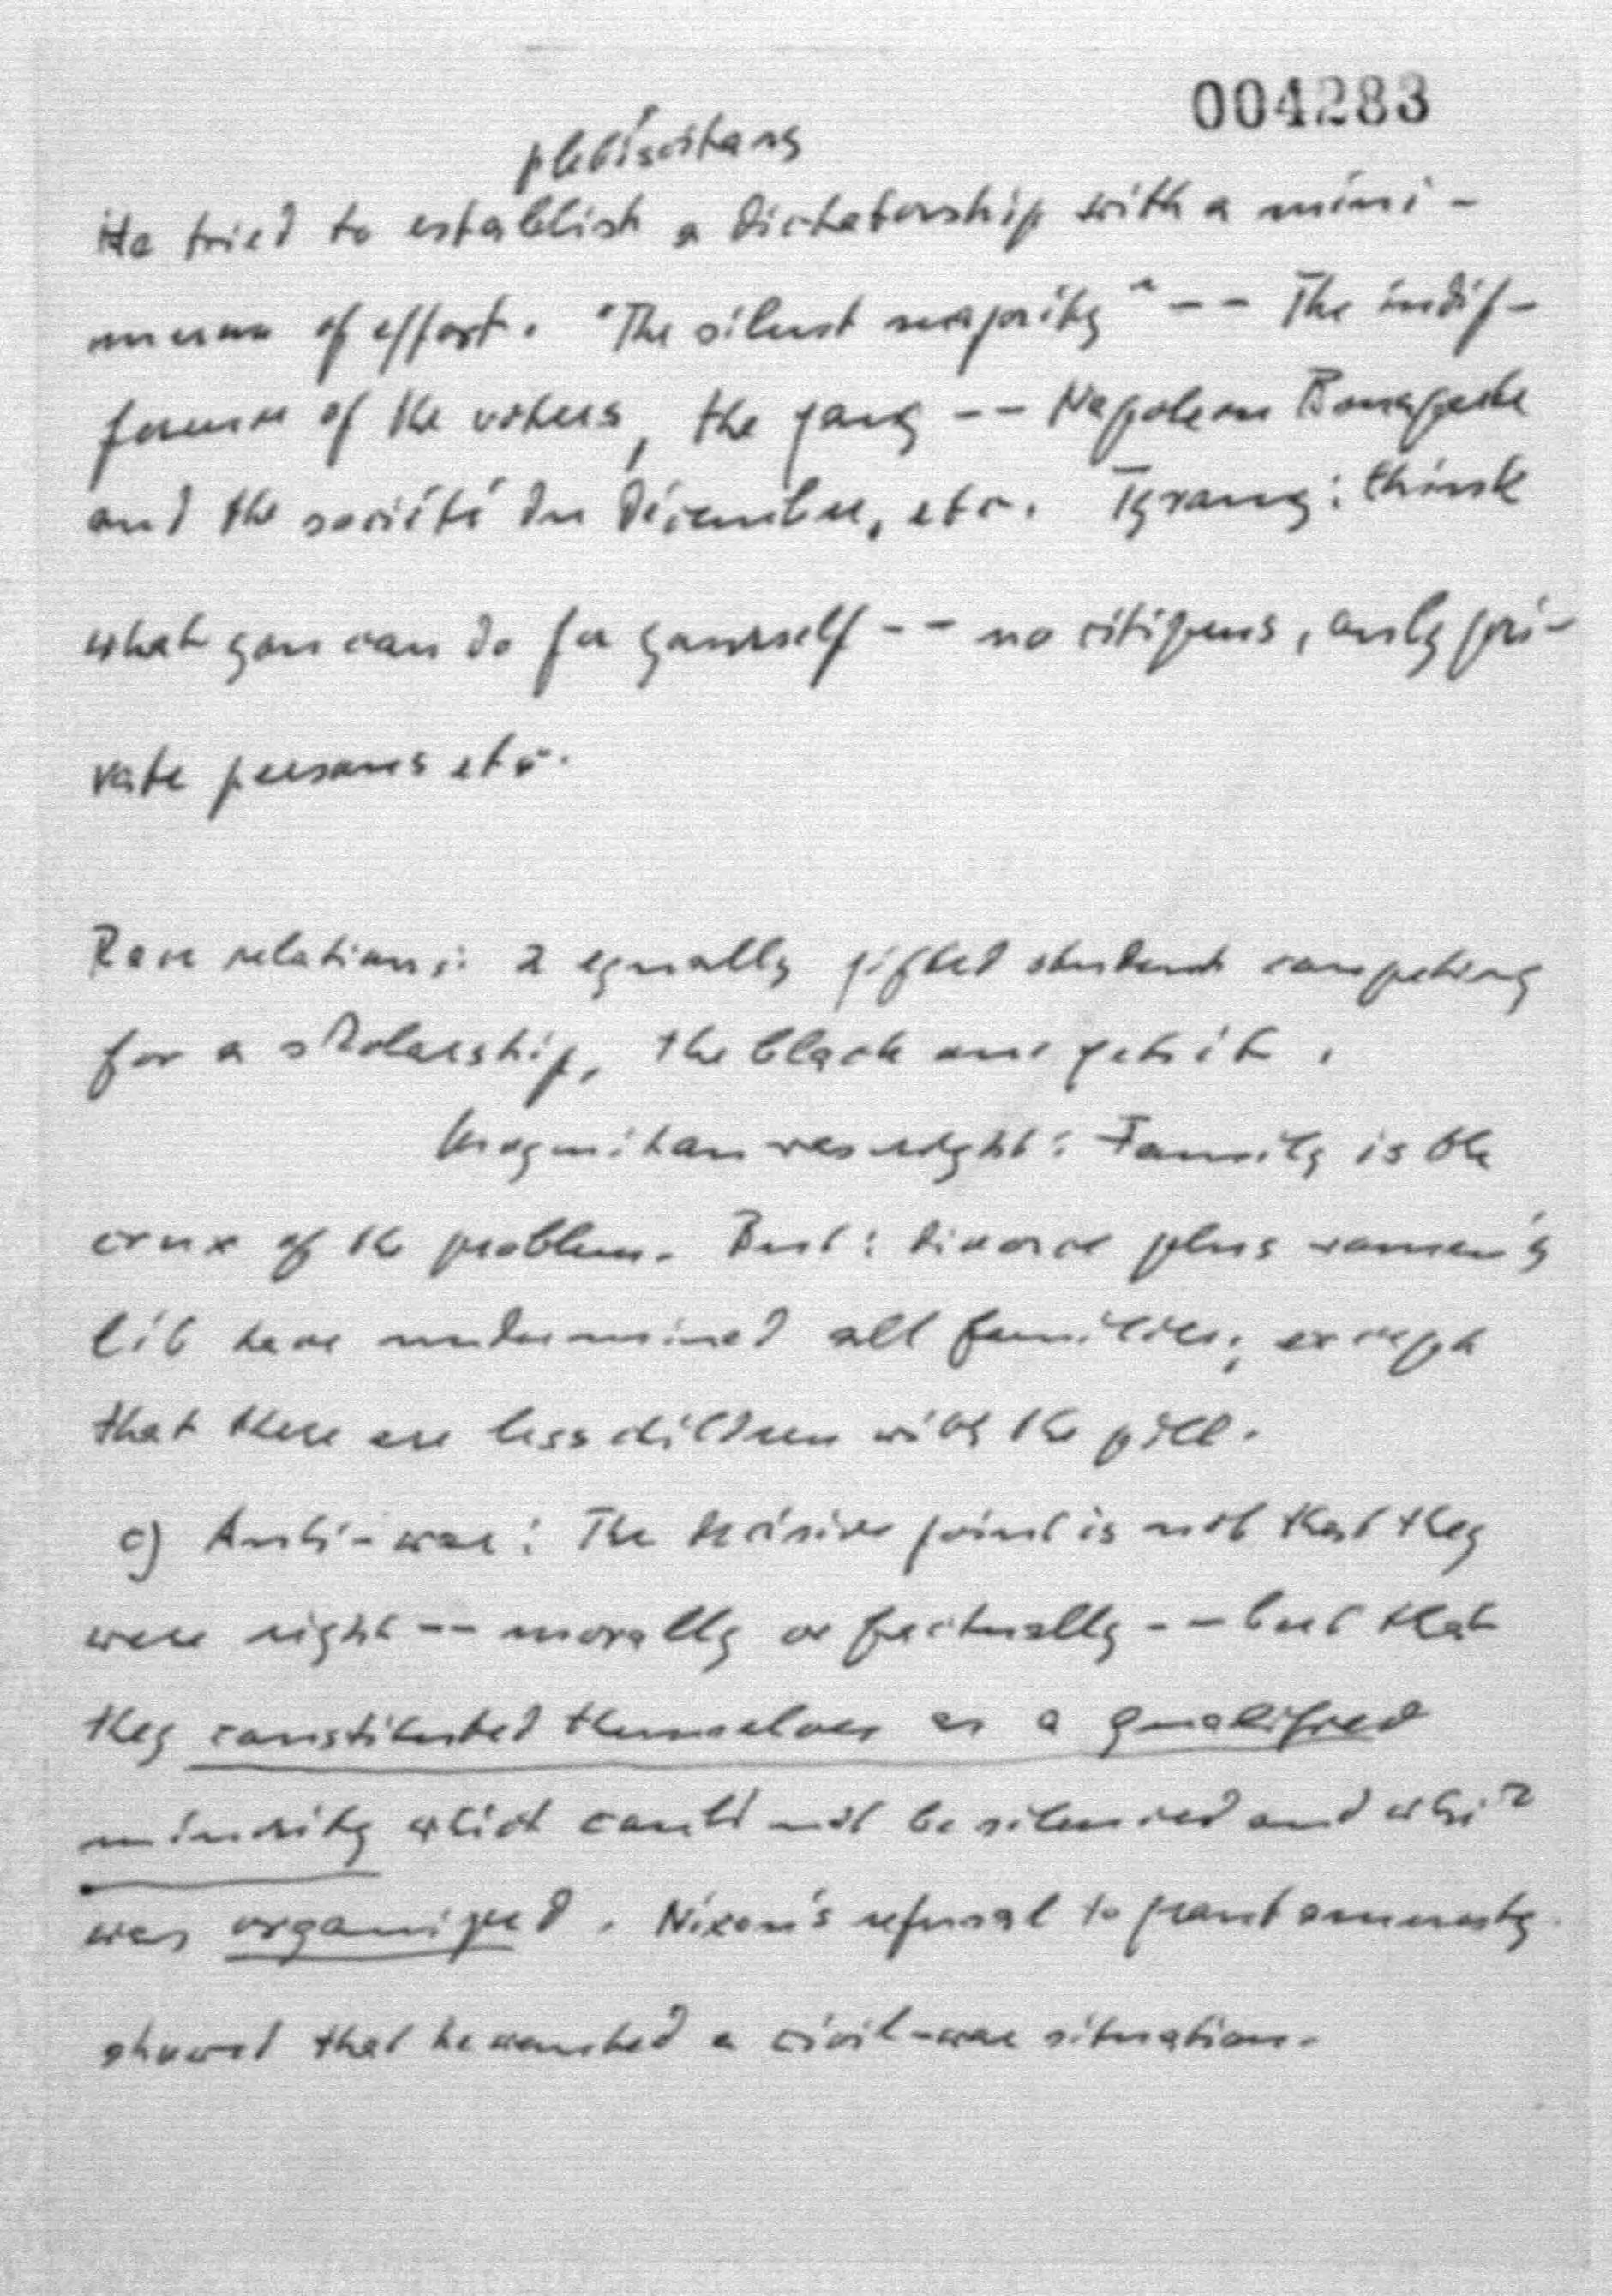 004283
plebiscitary
He tried to establish a dictatorship with a mini-
mum of effort. "The silent majority" -- The indif-
ference of the voters, the gang -- Napoleon Bonaparte
and the société du décembre, etc. Tyranny: think
what you can do for yourself -- no citizens, only pri-
vate persons etc.
Race relations: 2 equally gifted students competing
for a scholarship, the black one gets it.
Moynihan was right: Family is the
crux of the problem. But: divorce plus women's
lib have undermined all families; except
that there are less children with the pill.
c) Anti-war: The decisive point is not that they
were right -- morally or factually -- but that
they constituted themselves as a qualified
minority which could not be silenced and which
was organized. Nixon's refusal to grant amnesty
showed that he wanted a civil-war situation.